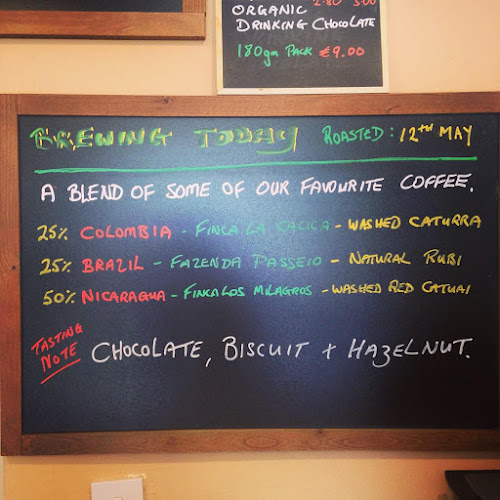 ORGANIC 2.80 3.00
DRINKING CHOCOLATE
180gm PACK €9.00
BREWING TODAY ROASTED: 12TH MAY
A BLEND OF SOME OF OUR FAVOURITE COFFEE.
25% COLOMBIA - FINCA LA CALICA - WASHED CATURRA
25% BRAZIL - FAZENDA PASSEIO - NATURAL RUBI
50% NICARAGUA - FINCA LOS MILAGROS - WASHED RED CATUAI
TASTING NOTE CHOCOLATE, BISCUIT + HAZELNUT.